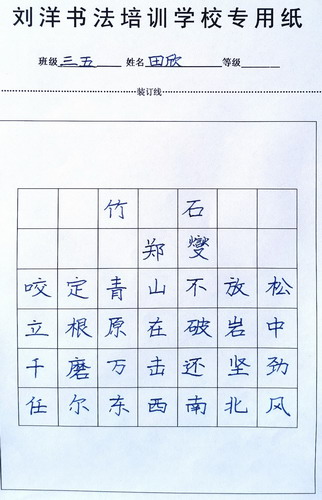 刘洋书法培训学校专用纸
班级 三五 姓名 田欣 等级
装订线
竹 石
郑 燮
咬 定 青 山 不 放 松
立 根 原 在 破 岩 中
千 磨 万 击 还 坚 劲
任 尔 东 西 南 北 风